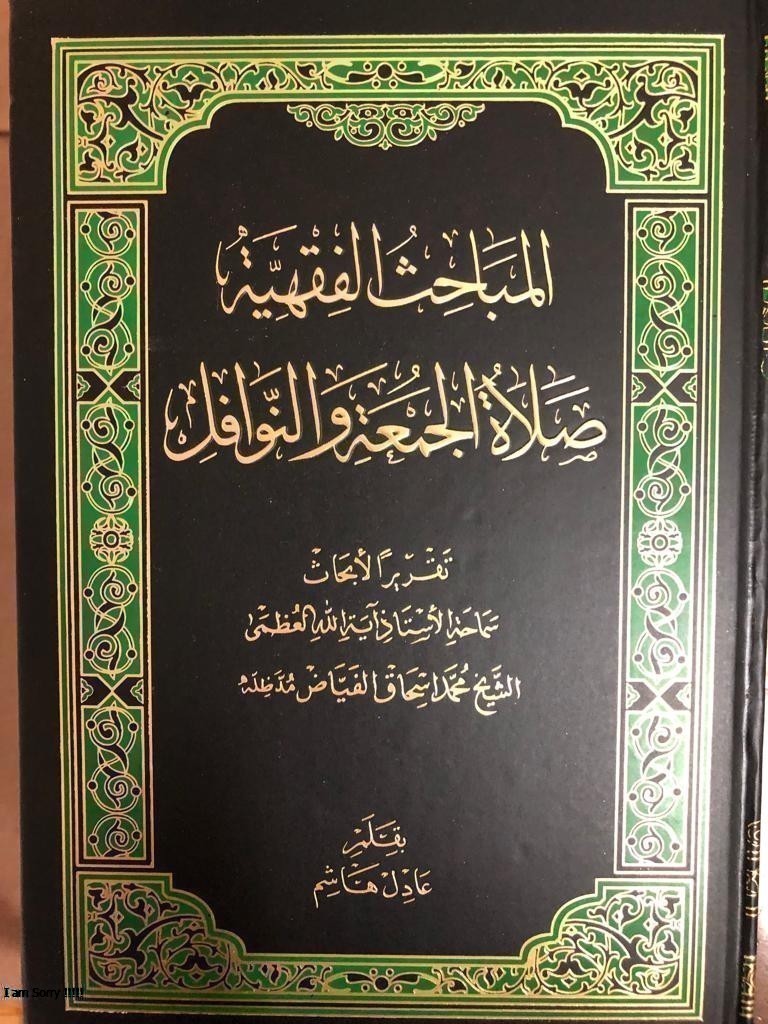 المَبَاحِثُ الفِقْهِيَّةُ
صَلَاةُ الجُمُعَةِ وَالنَّوَافِلِ
تَقْرِيرًا لأَبحَاثِ
سَمَاحَةِ الأُسْتَاذِ آيَةِ اللهِ العُظْمَى
الشَّيْخِ مُحَمَّد اِسْحَاق الفَيَّاضْ مُدَّظِلَّهُ
بِقَلَمِ
عَادِلْ هَاشِم
I am Sorry !!!!!